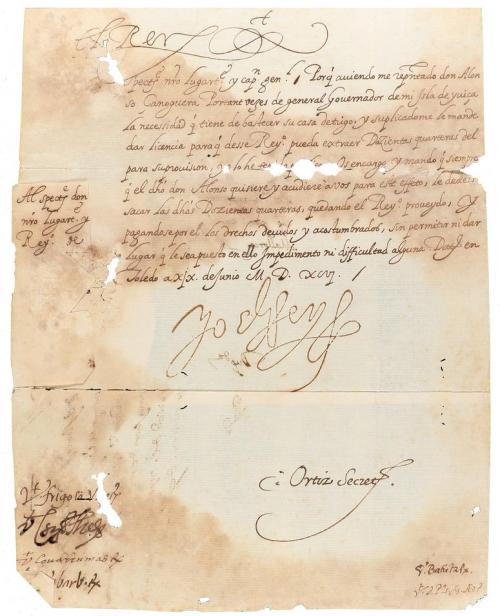 El Rey
Spect.e nro Lugart.e y cap.n gen.l Porq̃ auiendo me repñtado don Alon
so Canoguera Portant vezes de general Gouernador de mi Isla de yuiça
la necessidad q̃ tiene de bastecer su casa de trigo, y suplicadome le mande
dar licencia para q̃ desse Rey.o pueda extraer Dozientas quarteras del
para su prouision, y lo he os encargo y mando q̃ siempre
q̃ el dho don Alonso quisiere y acudiere a vos para este effeto, le dexeis
sacar las dhas Dozientas quarteras, quedando el Rey.o proueydo, y
pagandose por el los drechos deuidos y acostumbrados, sin permitir ni dar
lugar q̃ se le ponga en ello Impedimento ni difficultad alguna Dat. en
Toledo a xix. de Junio M. D. xcvj. /
Al spect.e don
nro Lugart.e y
Rey.o de
Yo el Rey
Ortiz Secret.s
V.t frigola V.
V.t Couarruuias R.